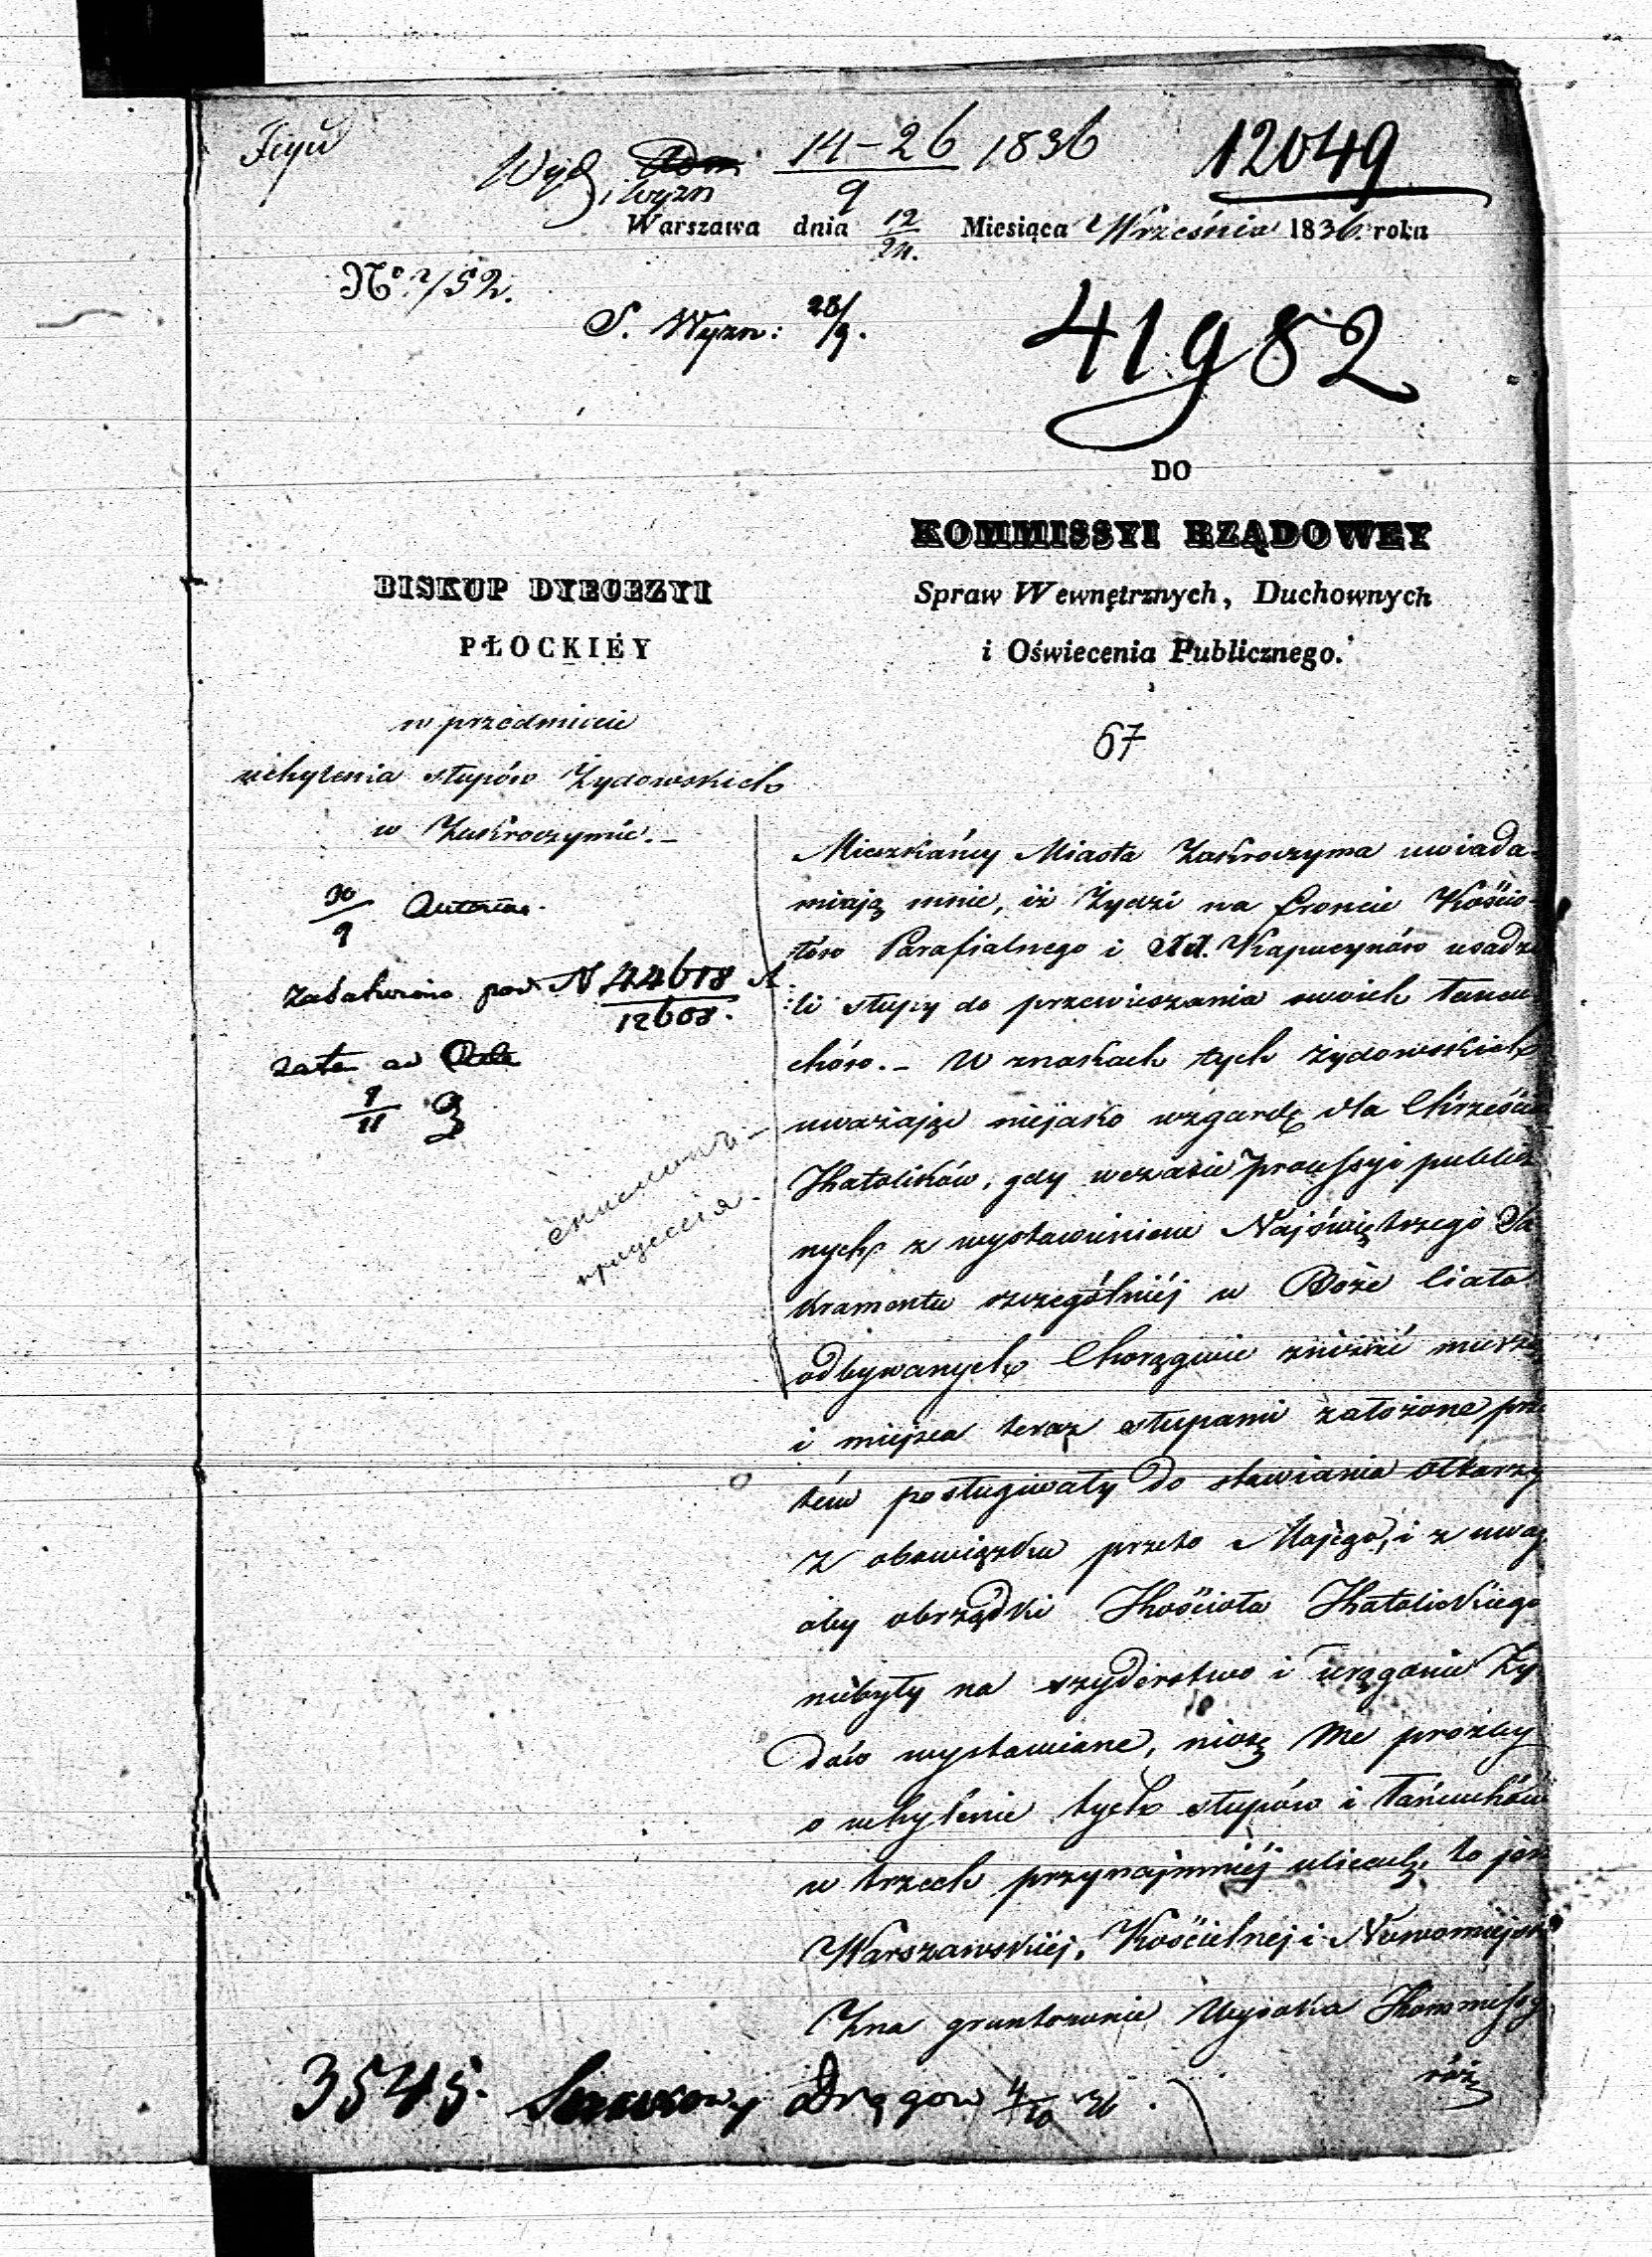 Wyd. 14-26/9 1836 12049
i Wyzn
Warszawa dnia 12/24. Miesiąca Września 1836. roku
No. 752.
S. Wyzn: 28/9.
41982
DO
KOMMISSYI RZĄDOWEY
Spraw Wewnętrznych, Duchownych
i Oświecenia Publicznego.
BISKUP DYECEZYI
PŁOCKIEY
w przedmiocie
uchylenia słupów Żydowskich
w Zakroczymie.-
30/9
Załatwiono pod N 44618/12608.
zatem ad
9/11
67
Mieszkańcy Miasta Zakroczyma uwiada-
miają mnie, iż Żydzi na froncie Kościo-
łów Parafialnego i Kapucynów usadzi
li słupy do przewieszania swoich łańcu-
chów.- W znakach tych żydowskich
uważając niejako wzgardę dla Chrześcian
Katolików, gdy wczasie processyi publicz
nych z wystawieniem Najświętszego Sa
kramentu szczególniéj w Boże Ciało
odbywanych Chorągwie zniżać muszą
i miejsca teraz słupami założone prze
tém posługiwały do stawiania ołtarzy
Z obowiązku przeto Mojego, i z uwagi
aby obrządki Kościoła Katolickiego
niebyły na szyderstwo i urąganie Ży
dów wystawiane, niosę Me prozby
o uchylenie tych słupów i łańcuchów
w trzech przynajmniéj ulicach, to jest
Warszawskiéj, Kościelnéj i Nowomiejski
Zna gruntownie Wysoka Kommissy
róż
3545. Drągow 4/10 36.